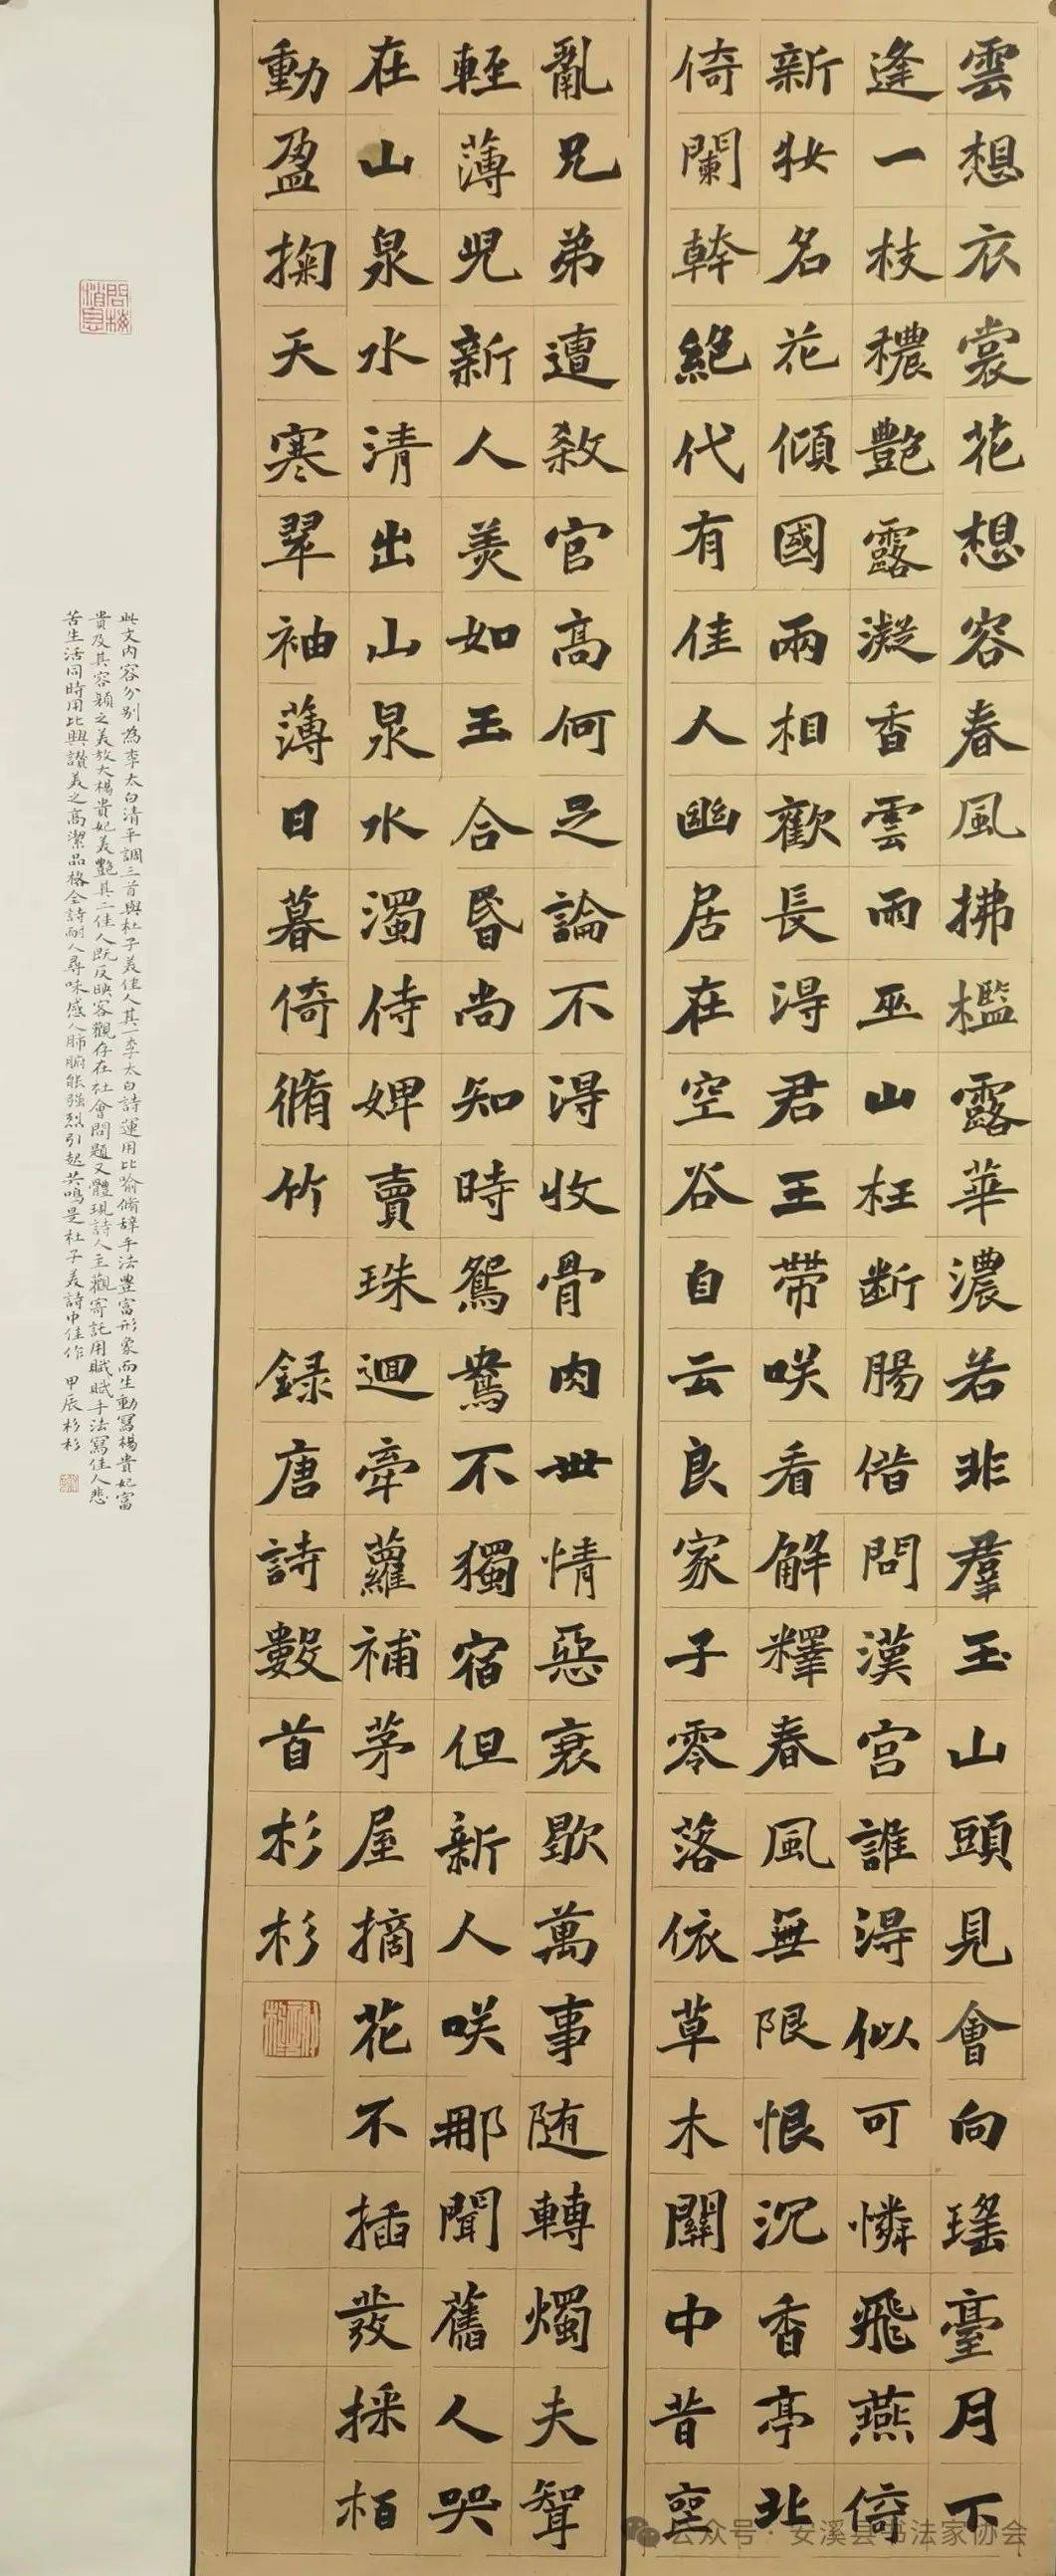 雲想衣裳花想容春風拂檻露華濃若非羣玉山頭見會向瑤臺月下
逢一枝穠艷露凝香雲雨巫山枉断腸借問漢宮誰得似可憐飛燕倚
新妝名花傾國兩相歡長得君王帶咲看解釋春風無限恨沉香亭北
倚闌幹絕代有佳人幽居在空谷自云良家子零落依草木關中昔喪
亂兄弟遭殺官高何足論不得收骨肉世情惡衰歇萬事随轉燭夫聟
輕薄兒新人美如玉合昏尚知時鴛鴦不獨宿但新人咲那聞舊人哭
在山泉水清出山泉水濁侍婢賣珠迴牽蘿補茅屋摘花不插發採栢
動盈掬天寒翠袖薄日暮倚脩竹 録唐詩數首杉杉
此文内容分别為李太白清平調三首與杜子美佳人其一李太白詩運用比喻脩辞手法豐富形象而生動寫楊貴妃富
貴及其容顏之美放大楊貴妃美艷其二佳人既反映客觀存在社會問題又體現詩人主觀寄託用賦賦手法寫佳人悲
苦生活同時用比興讚美之高潔品格全詩耐人尋味感人肺腑能強烈引起共鳴是杜子美詩中佳作 甲辰杉杉
公众号 · 安溪县书法家协会